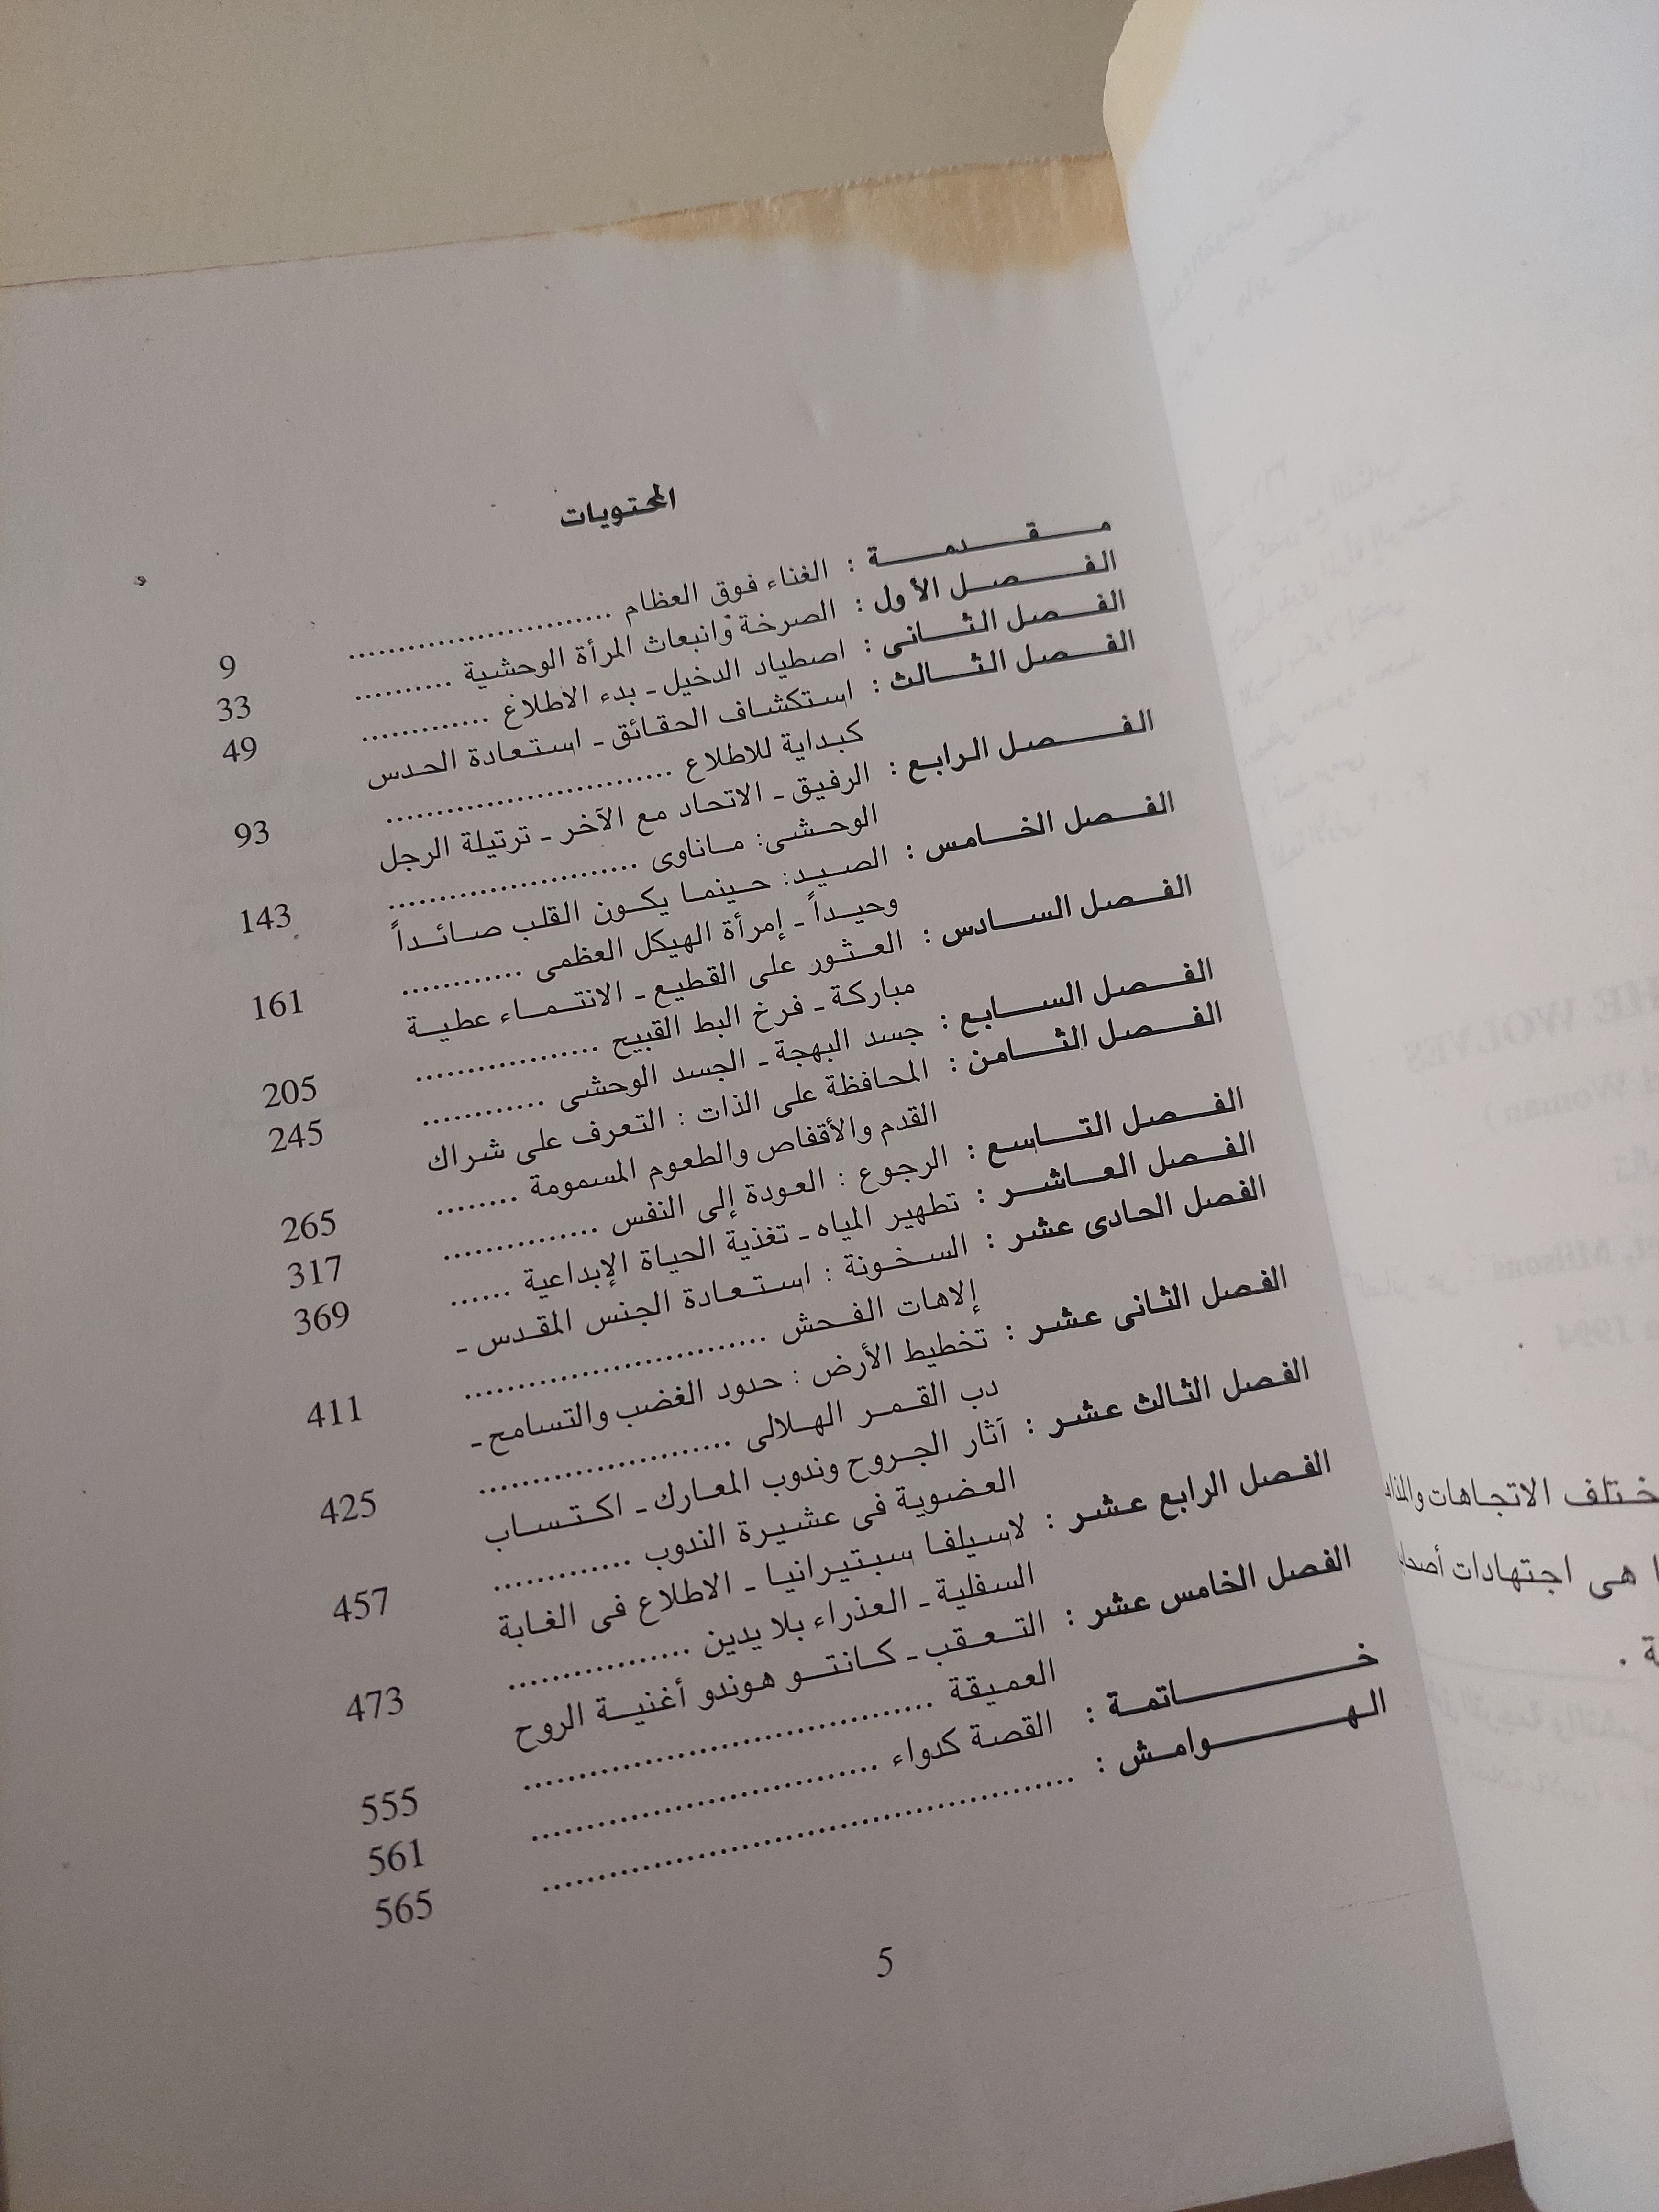 المحتويات
مقدمة : الغناء فوق العظام .......................... 9
الفصل الأول : الصرخة وانبعاث المرأة الوحشية .......... 33
الفصل الثانى : اصطياد الدخيل ـ بدء الاطلاع ............ 49
الفصل الثالث : استكشاف الحقائق ـ استعادة الحدس
كبداية للاطلاع ............................ 93
الفصل الرابع : الرفيق ـ الاتحاد مع الآخر ـ ترتيلة الرجل
الوحشى: ماناوى ........................ 143
الفصل الخامس : الصيد: حينما يكون القلب صائداً
وحيداً ـ إمرأة الهيكل العظمى ............ 161
الفصل السادس : العثور على القطيع ـ الانتماء عطية
مباركة ـ فرخ البط القبيح ................. 205
الفصل السابع : جسد البهجة ـ الجسد الوحشى ............ 245
الفصل الثامن : المحافظة على الذات : التعرف على شراك
القدم والأقفاص والطعوم المسمومة ........ 265
الفصل التاسع : الرجوع : العودة إلى النفس ............... 317
الفصل العاشر : تطهير المياه ـ تغذية الحياة الإبداعية ...... 369
الفصل الحادى عشر : السخونة : استعادة الجنس المقدس ـ
إلاهات الفحش ............................. 411
الفصل الثانى عشر : تخطيط الأرض : حدود الغضب والتسامح ـ
دب القمر الهلالى ........................ 425
الفصل الثالث عشر : آثار الجروح وندوب المعارك ـ اكتساب
العضوية فى عشيرة الندوب ............. 457
الفصل الرابع عشر : لاسيلفا سبتيرانيا ـ الاطلاع فى الغابة
السفلية ـ العذراء بلا يدين ................. 473
الفصل الخامس عشر : التعقب ـ كانتو هوندو أغنية الروح
العميقة ....................................... 555
خاتمة : القصة كدواء ................................. 561
الهوامش : .................................................... 565
5
ختلف الاتجاهات والمذاهب
ا هى اجتهادات أصحاب
ة .